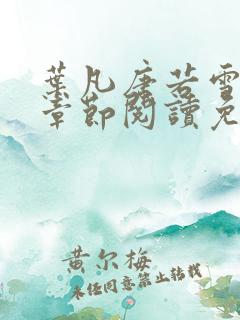 葉凡唐若雪
章節閱讀免
黄尔梅
未经同意禁止转载